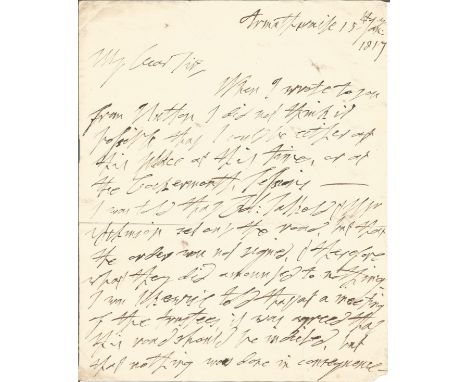 Armathwaite 13th
1817
My Dear Sir,
When I wrote to you
from Hutton I did not think it
possible that I could be either at
this place at this time, or at
the Cockermouth Sessions
I was told that
Atkinson the road, but that
the order was not signed, & therefore
what they did amounted to nothing
I was likewise told that at a meeting
of the trustees it was agreed that
this road should be indicted, but
that nothing was done in consequence